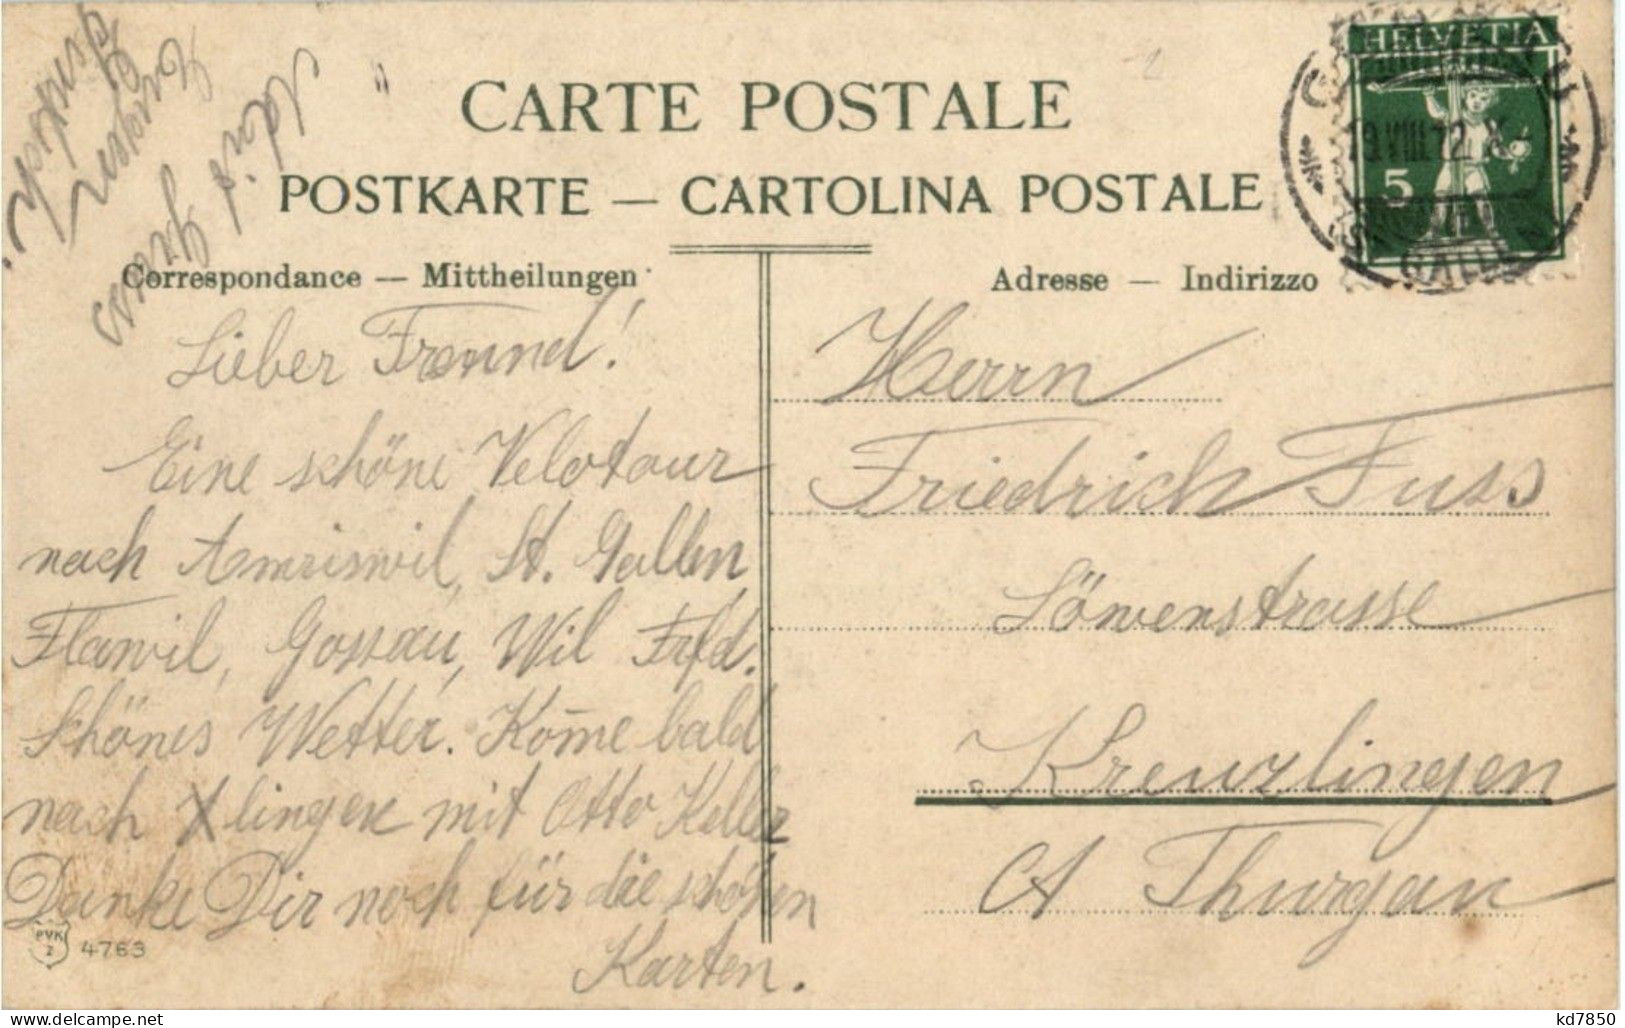 CARTE POSTALE
POSTKARTE — CARTOLINA POSTALE
Correspondance — Mittheilungen
Adresse — Indirizzo
HELVETIA
5
19.VIII.12.
GALLEN
Lieber Freund!
Eine schöne Velotour
nach Amriswil, St. Gallen,
Flawil, Gossau, Wil Frfld.
Schönes Wetter. Kom̄e bald
nach Xlingen mit Otto Keller
Danke Dir noch für die schönen
Karten.
Adie
Herrn
Friedrich Fuss
Löwenstrasse
Kreuzlingen
Ct Thurgau
PVK
Z
4763
kd7850